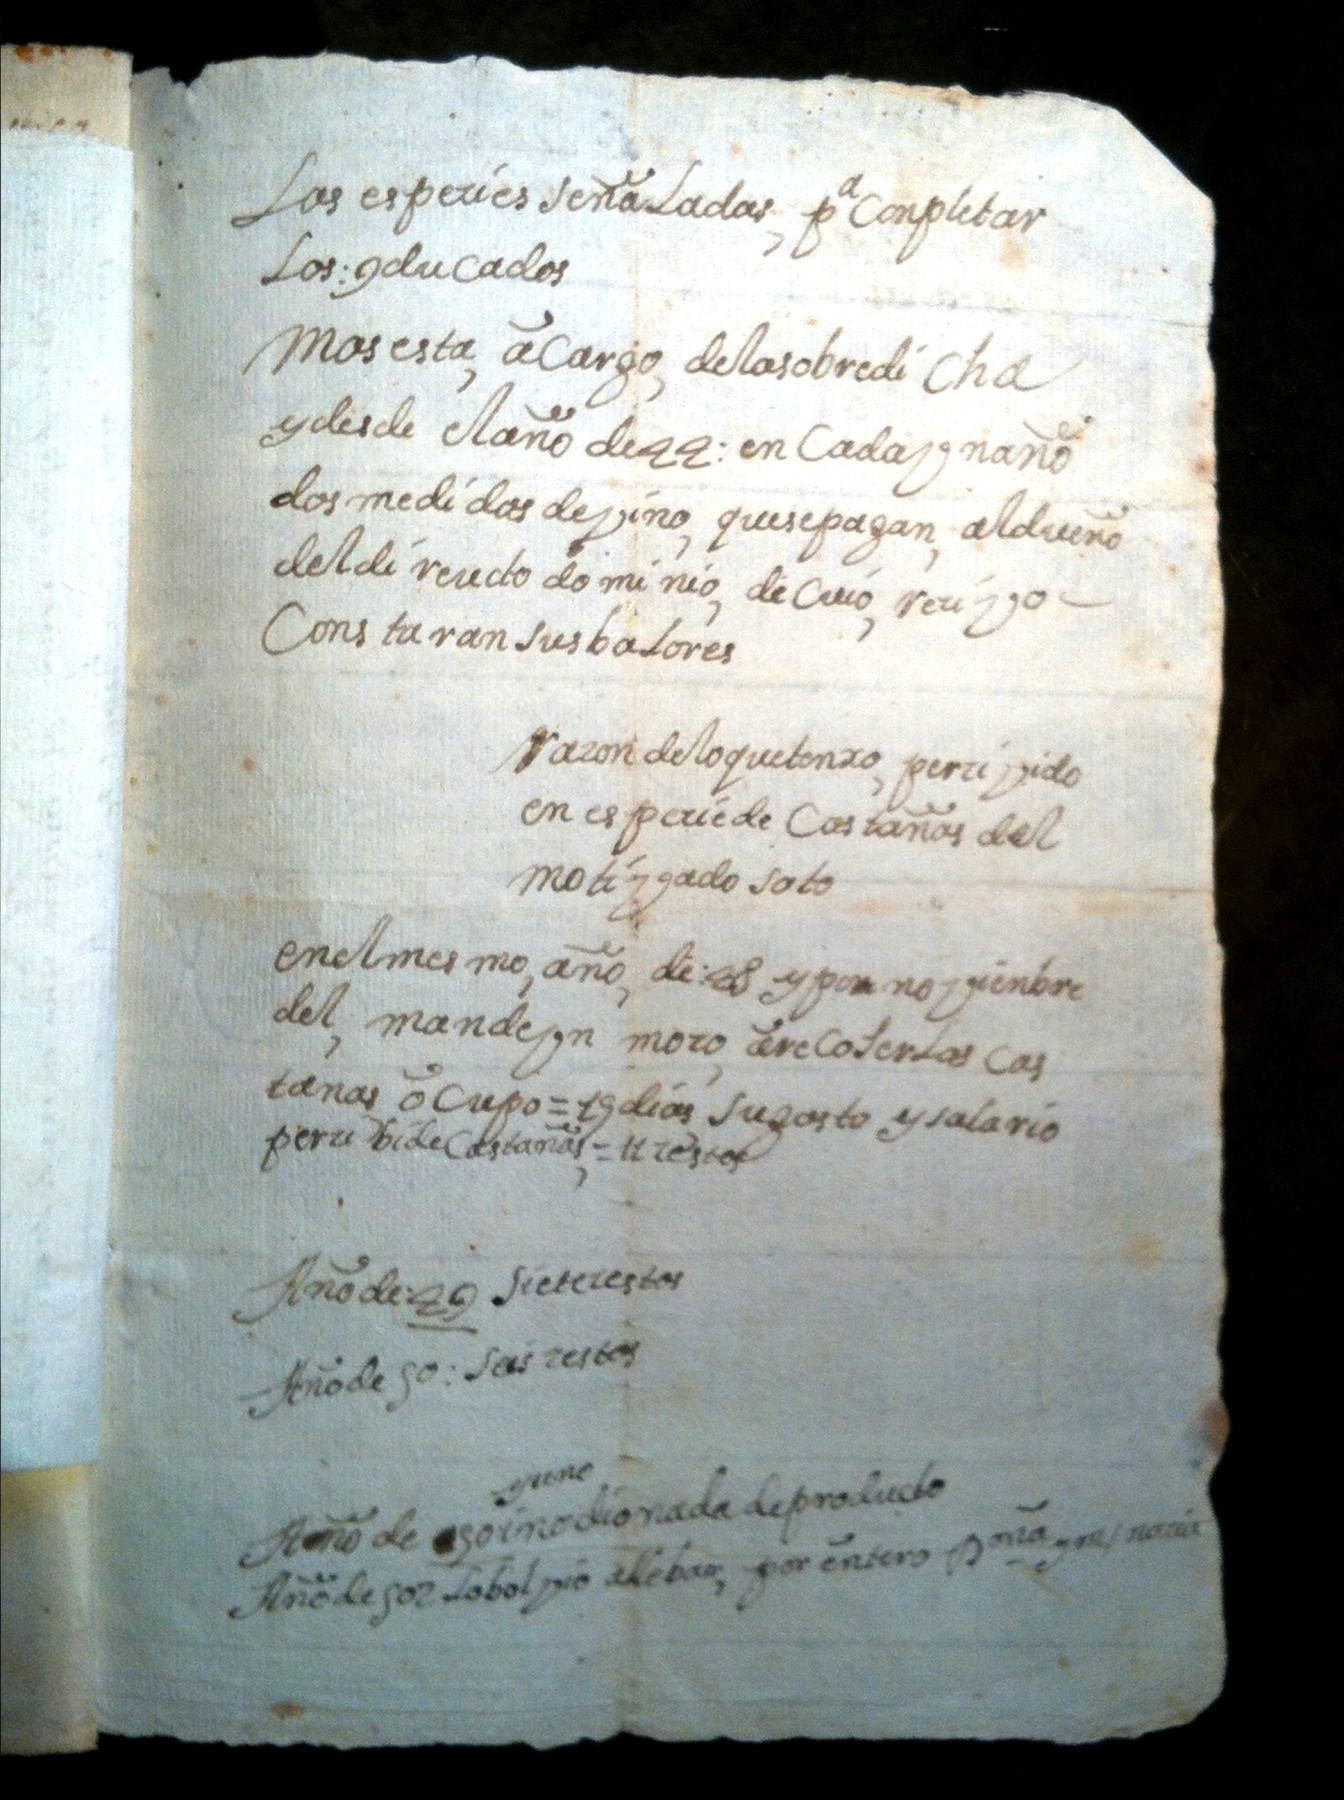 Las especies señaladas, pª Conpletar
Los: 9 ducados
Mas esta, a Cargo, de la sobredi Cha
y desde el año de 44: en Cada vn año
dos medidas de vino, que se pagan, al dueño
del di recto do mi nio, de Cuio, reci vo
Cons ta ran sus balores
razon de lo que tengo, perci vido
en especie de Castañas del
moti vado soto
en el mes mo, año, de: 48 y por no vienbre
del, mande vn mozo, a recoser las Cas
tañas o Cupo = 19 dias su gasto y salario
perci bi de Castañas, = 11 zestos
Año de: 49 siete zestos
Año de 50: seis zestos
y uno
Año de 50 i no dio nada de producto
Año de 502 lo bol vio a llebar, por entero Dª mª